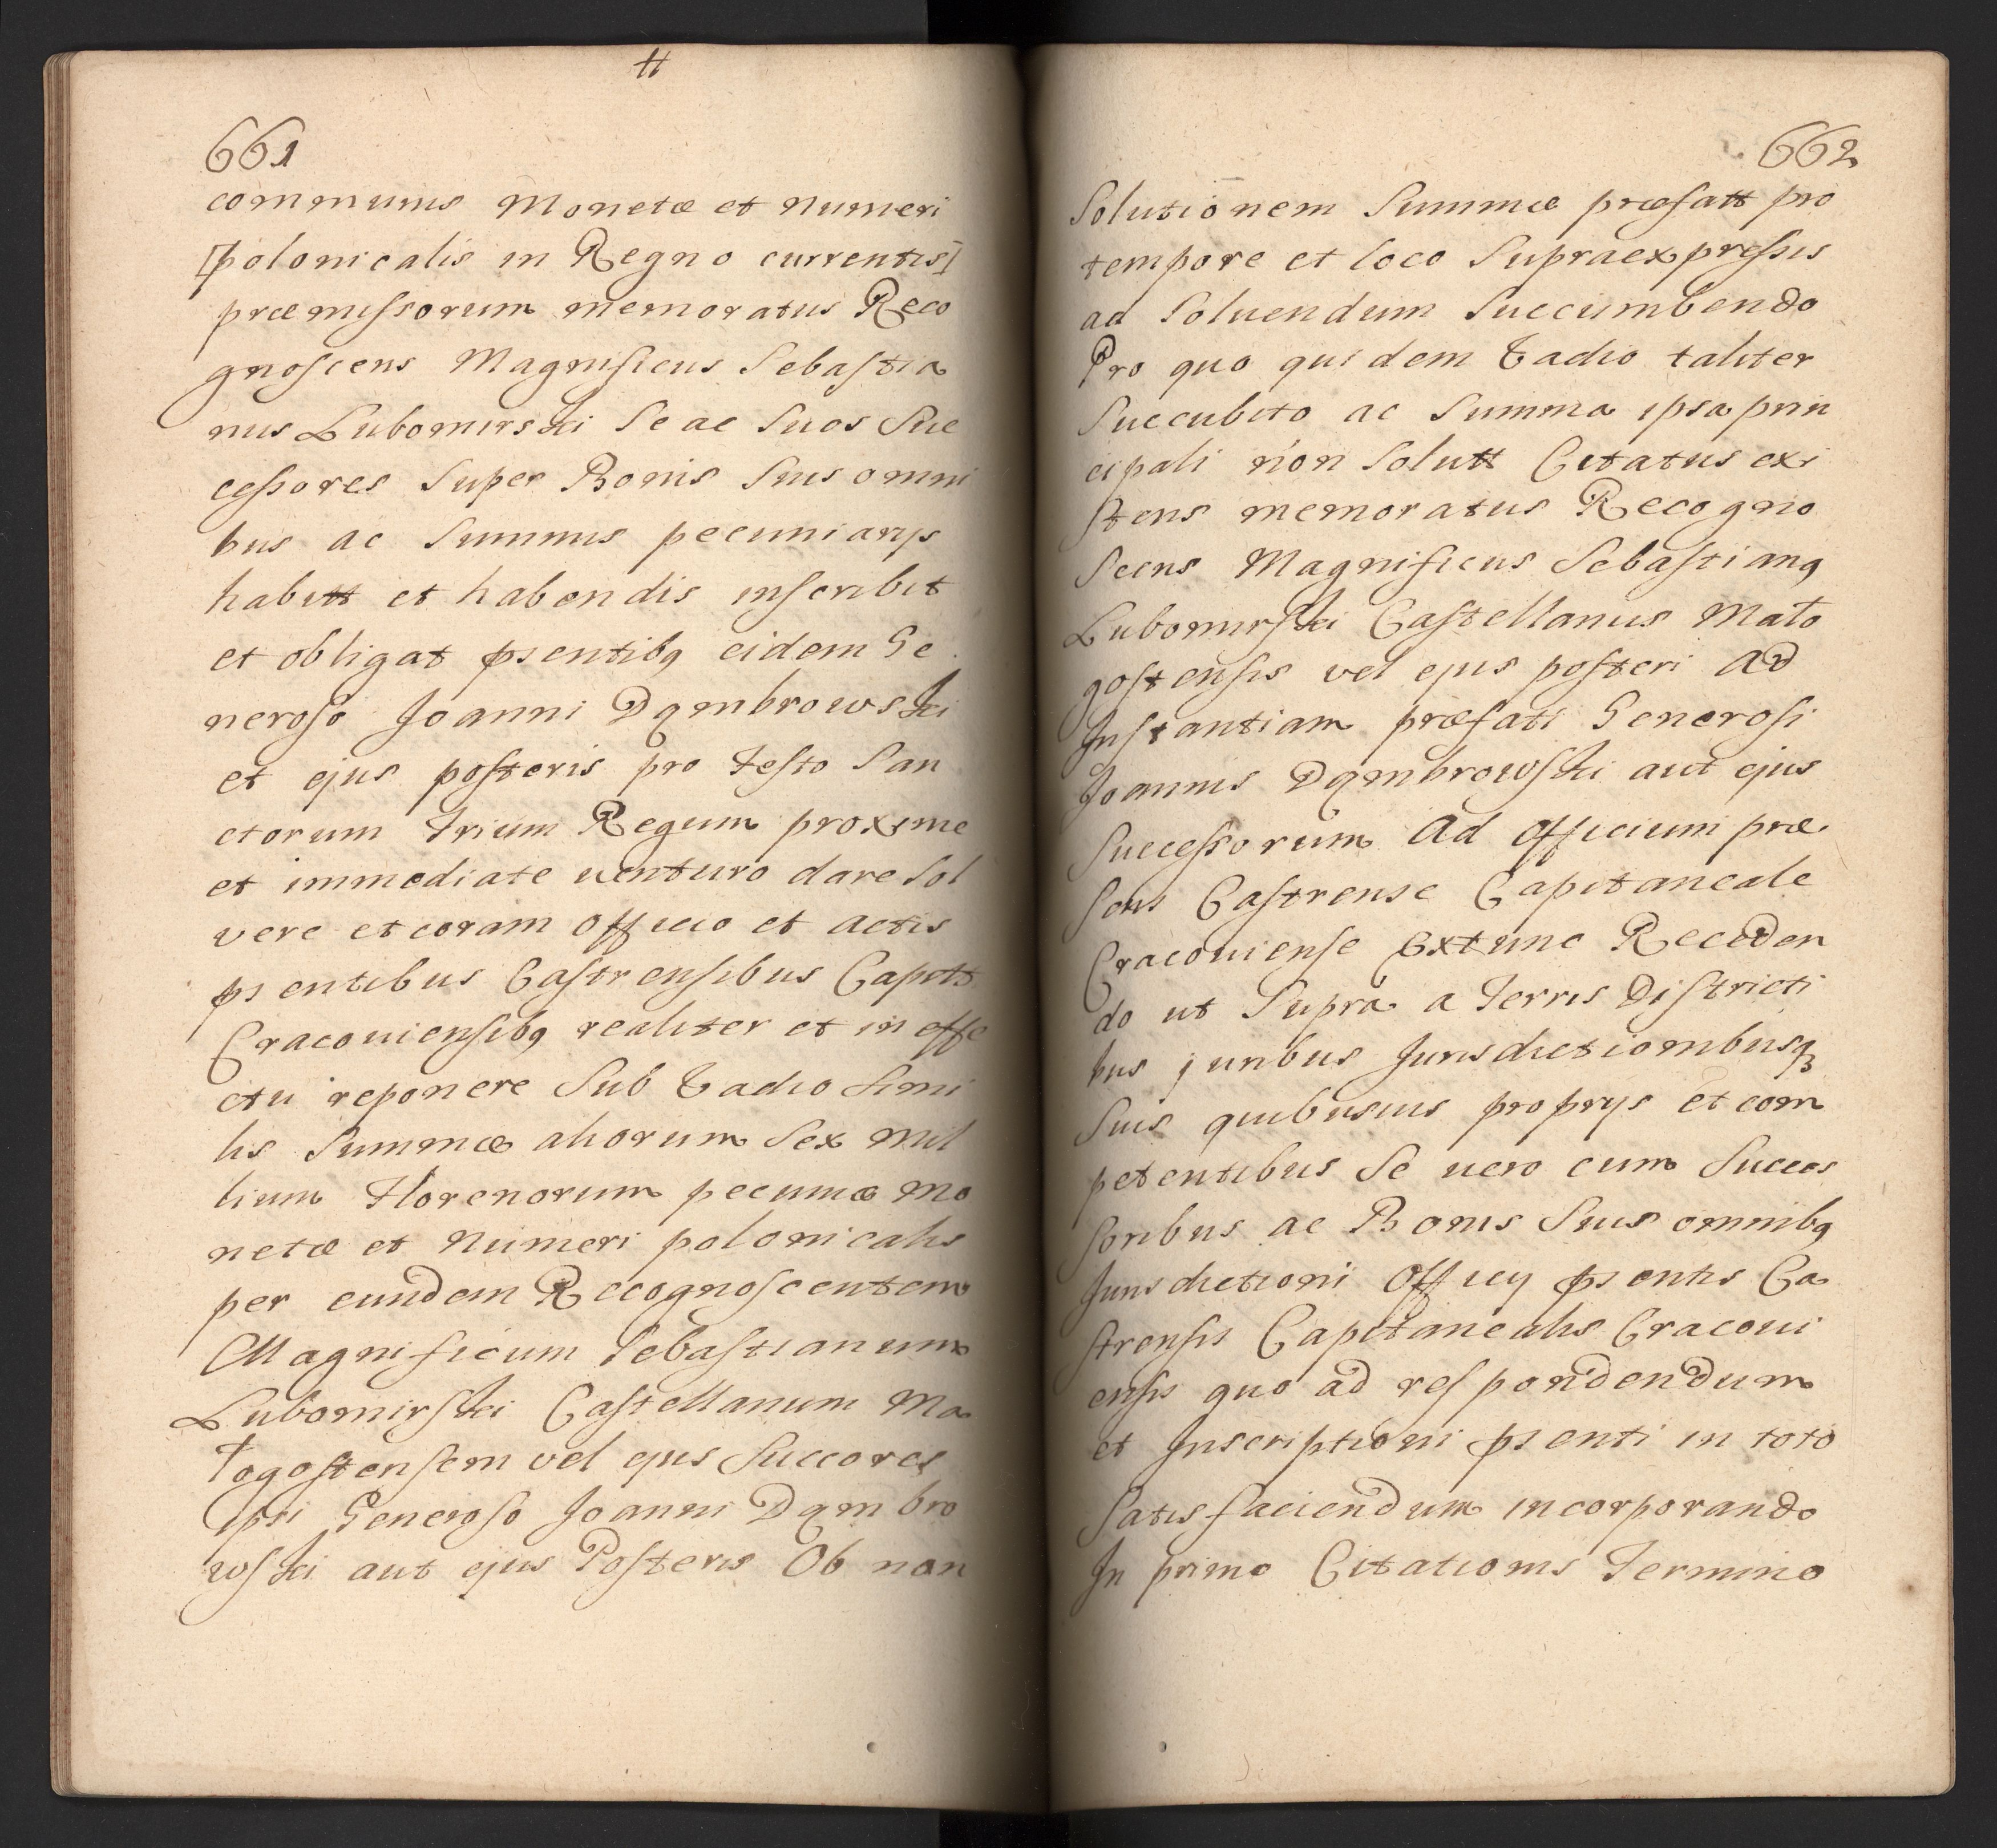 tt
661
communis Monetæ et Numeri
[polonicalis in Regno currentis]
præmissorum memoratus Reco
gnoscens Magnificus Sebastia
nus Lubomirski Se ac Suos Suc
cessores Super Bonis Suis omni
bus ac Summis pecuniarijs
habitt et habendis inscribit
et obligat psentibq eidem Ge
neroso Joanni Dąmbrowski
et ejus posteris pro Festo San
ctorum Trium Regum proxime
et immediate venturo dare Sol
vere et coram Officio et Actis
psentibus Castrensibus Capitt
Cracouiensibq realiter et in effe
ctu reponere Sub Vadio Simi
lis Summæ aliorum Sex Mil
lium Florenorum pecuniæ Mo
netæ et Numeri polonicalis
per eundem Recognoscentem
Magnificum Sebastianum
Lubomirski Castellanum Ma
łogostensem vel ejus Succores
ipsi Generoso Joanni Dąmbro
wski aut ejus Posteris Ob non
662
Solutionem Summæ præfatt pro
tempore et loco Supraexpressis
ad Soluendum Succumbendo
Pro quo quidem Vadio taliter
Succubito ac Summa ipsa prin
cipali non Solutt Citatus exi
stens memoratus Recogno
Scens Magnificus Sebastianq
Lubomirski Castellanus Mało
gostensis vel ejus posteri Ad
Instantiam præfati Generosi
Joannis Dąmbrowski aut ejus
Successorum Ad Officium præ
sens Castrense Capitaneale
Cracouiense Extunc Receden
do ut Supra a Terris Districti
bus juribus Jurisdictionibusq
Suis quibusuis proprijs et com
petentibus Se uero cum Succes
soribus ac Bonis Suis omnibq
Jurisdictioni Officij psentis Ca
strensis Capitanealis Cracoui
ensis quo ad respondendum
et Inscriptioni psenti in toto
Satisfaciendum incorporando
In primo Citationis Termino